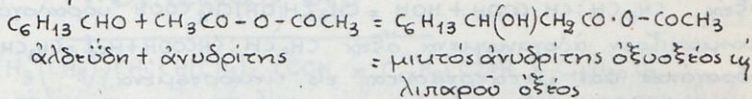 C₆H₁₃CHO + CH₃CO-O-COCH₃ = C₆H₁₃CH(OH)CH₂CO·O-COCH₃
ἀλδεΰδη + ἀνυδρίτης = μικτος ἀνυδρίτης ὀξυοξέος ἠ
λιπαροῦ ὀξέος